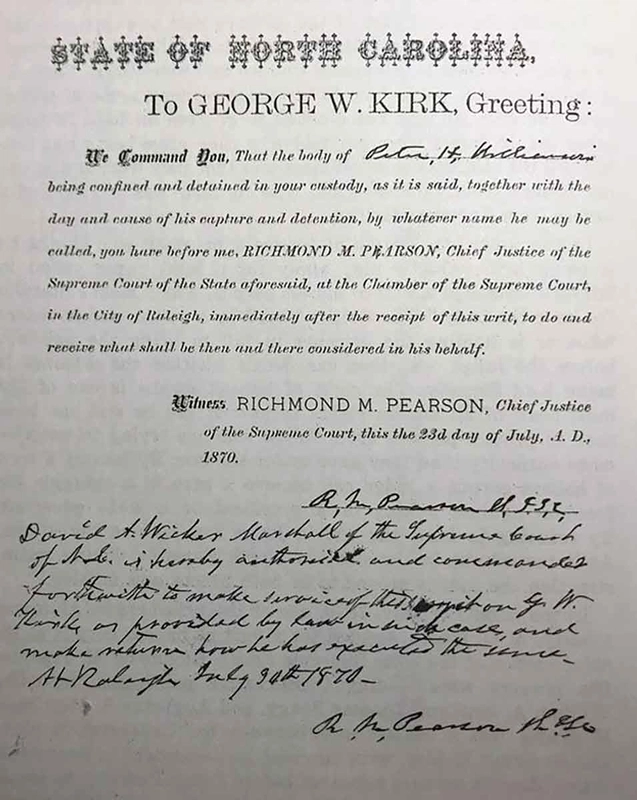 STATE OF NORTH CAROLINA,
To GEORGE W. KIRK, Greeting:
We Command You, That the body of Peter H. Williamson
being confined and detained in your custody, as it is said, together with the
day and cause of his capture and detention, by whatever name he may be
called, you have before me, RICHMOND M. PEARSON, Chief Justice of the
Supreme Court of the State aforesaid, at the Chamber of the Supreme Court,
in the City of Raleigh, immediately after the receipt of this writ, to do and
receive what shall be then and there considered in his behalf.
Witness RICHMOND M. PEARSON, Chief Justice
of the Supreme Court, this the 23d day of July, A. D.,
1870.
R. M. Pearson
David A. Wicker Marshall of the Supreme Court
of N.C. is hereby authorised and commanded
forthwith to make service of this writ on G. W.
Kirk, as provided by law in such case, and
make return how he has executed the same
At Raleigh July 1870—
R. M. Pearson